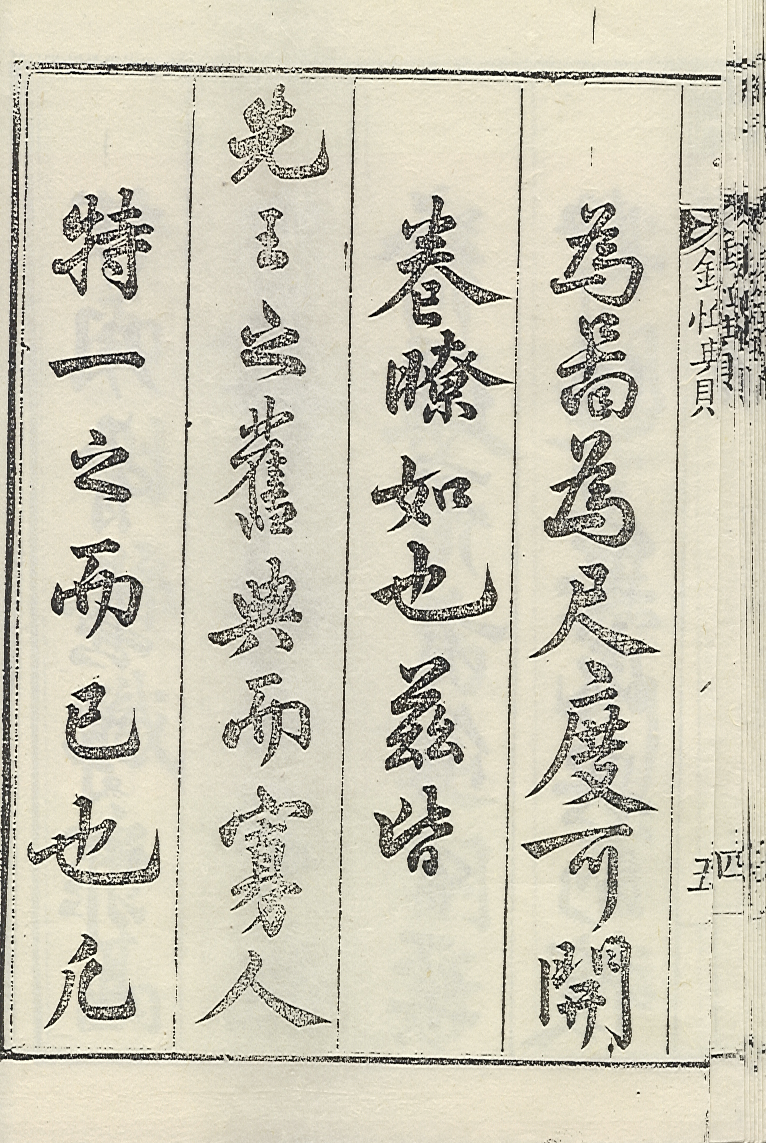 為啚為尺度可開
卷瞭如也茲皆
先王之舊典而寡人
特一之而已也凡
五
四